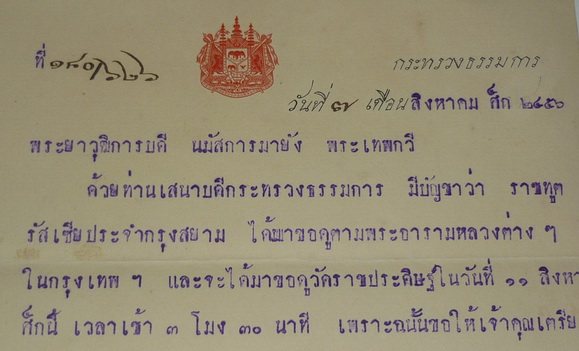 ที่ ๑๙๐/๖๒๖
กระทรวงธรรมการ
วันที่ ๗ เดือน สิงหาคม ศ๊ก ๒๔๕๖
พระยาวุฒิการบดี นมัสการมายัง พระเทพกวี
ด้วยท่านเสนาบดีกระทรวงธรรมการ มีบัญชาว่า ราชทูต
รัสเซียประจำกรุงสยาม ได้มาขอดูตามพระอารามหลวงต่าง ๆ
ในกรุงเทพ ฯ และจะได้มาขอดูวัดราชประดิษฐ์ในวันที่ ๑๑ สิงหา
ศ๊กนี้ เวลาเช้า ๓ โมง ๓๐ นาที เพราะฉนั้นขอให้เจ้าคุณเตรีย